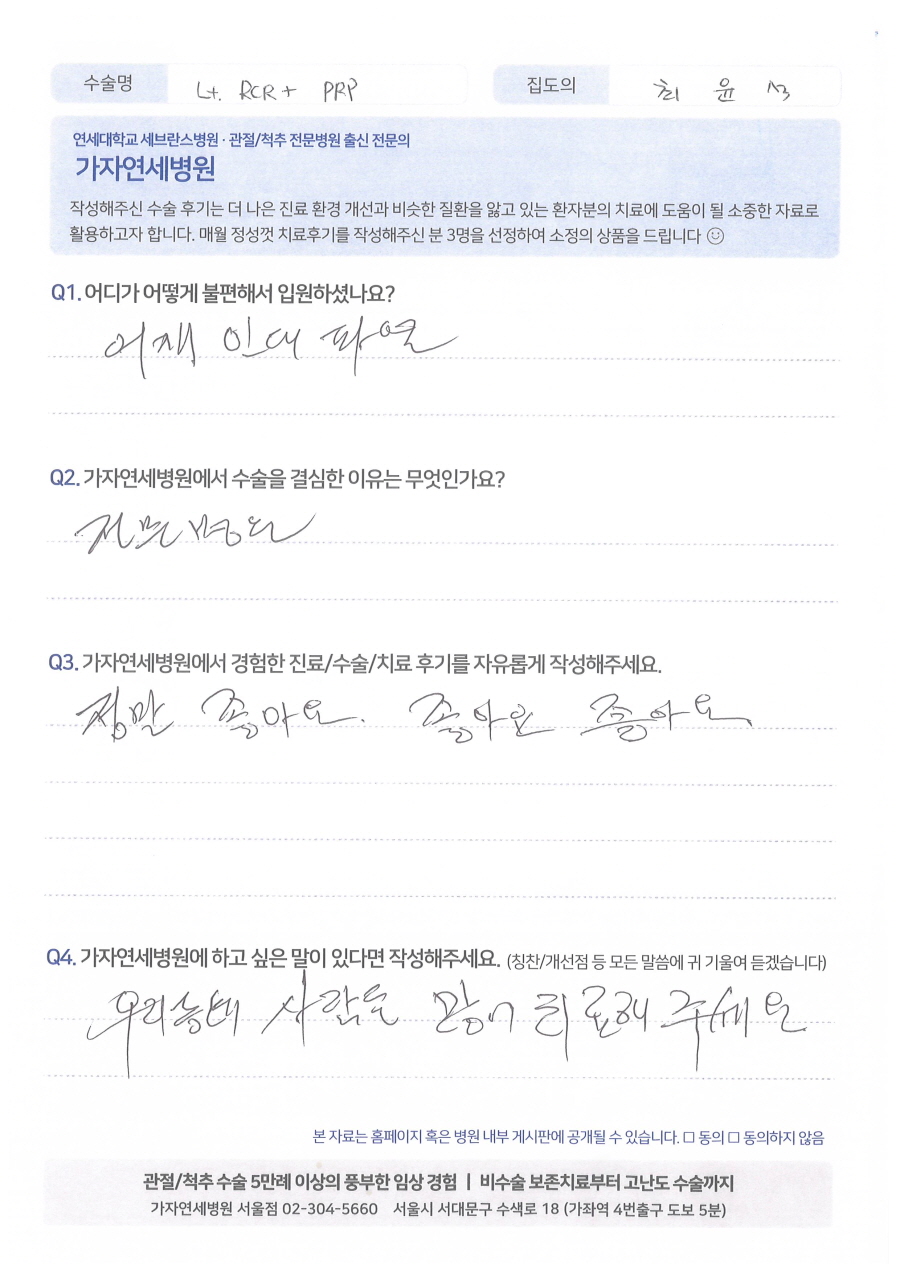 수술명 Lt. RCR + PRP 집도의 최 윤 석
연세대학교 세브란스병원 · 관절/척추 전문병원 출신 전문의
가자연세병원
작성해주신 수술 후기는 더 나은 진료 환경 개선과 비슷한 질환을 앓고 있는 환자분의 치료에 도움이 될 소중한 자료로
활용하고자 합니다. 매월 정성껏 치료후기를 작성해주신 분 3명을 선정하여 소정의 상품을 드립니다 ☺
Q1. 어디가 어떻게 불편해서 입원하셨나요?
어깨 인대 파열
Q2. 가자연세병원에서 수술을 결심한 이유는 무엇인가요?
전문병원
Q3. 가자연세병원에서 경험한 진료/수술/치료 후기를 자유롭게 작성해주세요.
정말 좋아요. 좋아요 좋아요.
Q4. 가자연세병원에 하고 싶은 말이 있다면 작성해주세요. (칭찬/개선점 등 모든 말씀에 귀 기울여 듣겠습니다)
사람들 치료해 주세요
본 자료는 홈페이지 혹은 병원 내부 게시판에 공개될 수 있습니다. □ 동의 □ 동의하지 않음
관절/척추 수술 5만례 이상의 풍부한 임상 경험 | 비수술 보존치료부터 고난도 수술까지
가자연세병원 서울점 02-304-5660 서울시 서대문구 수색로 18 (가좌역 4번출구 도보 5분)